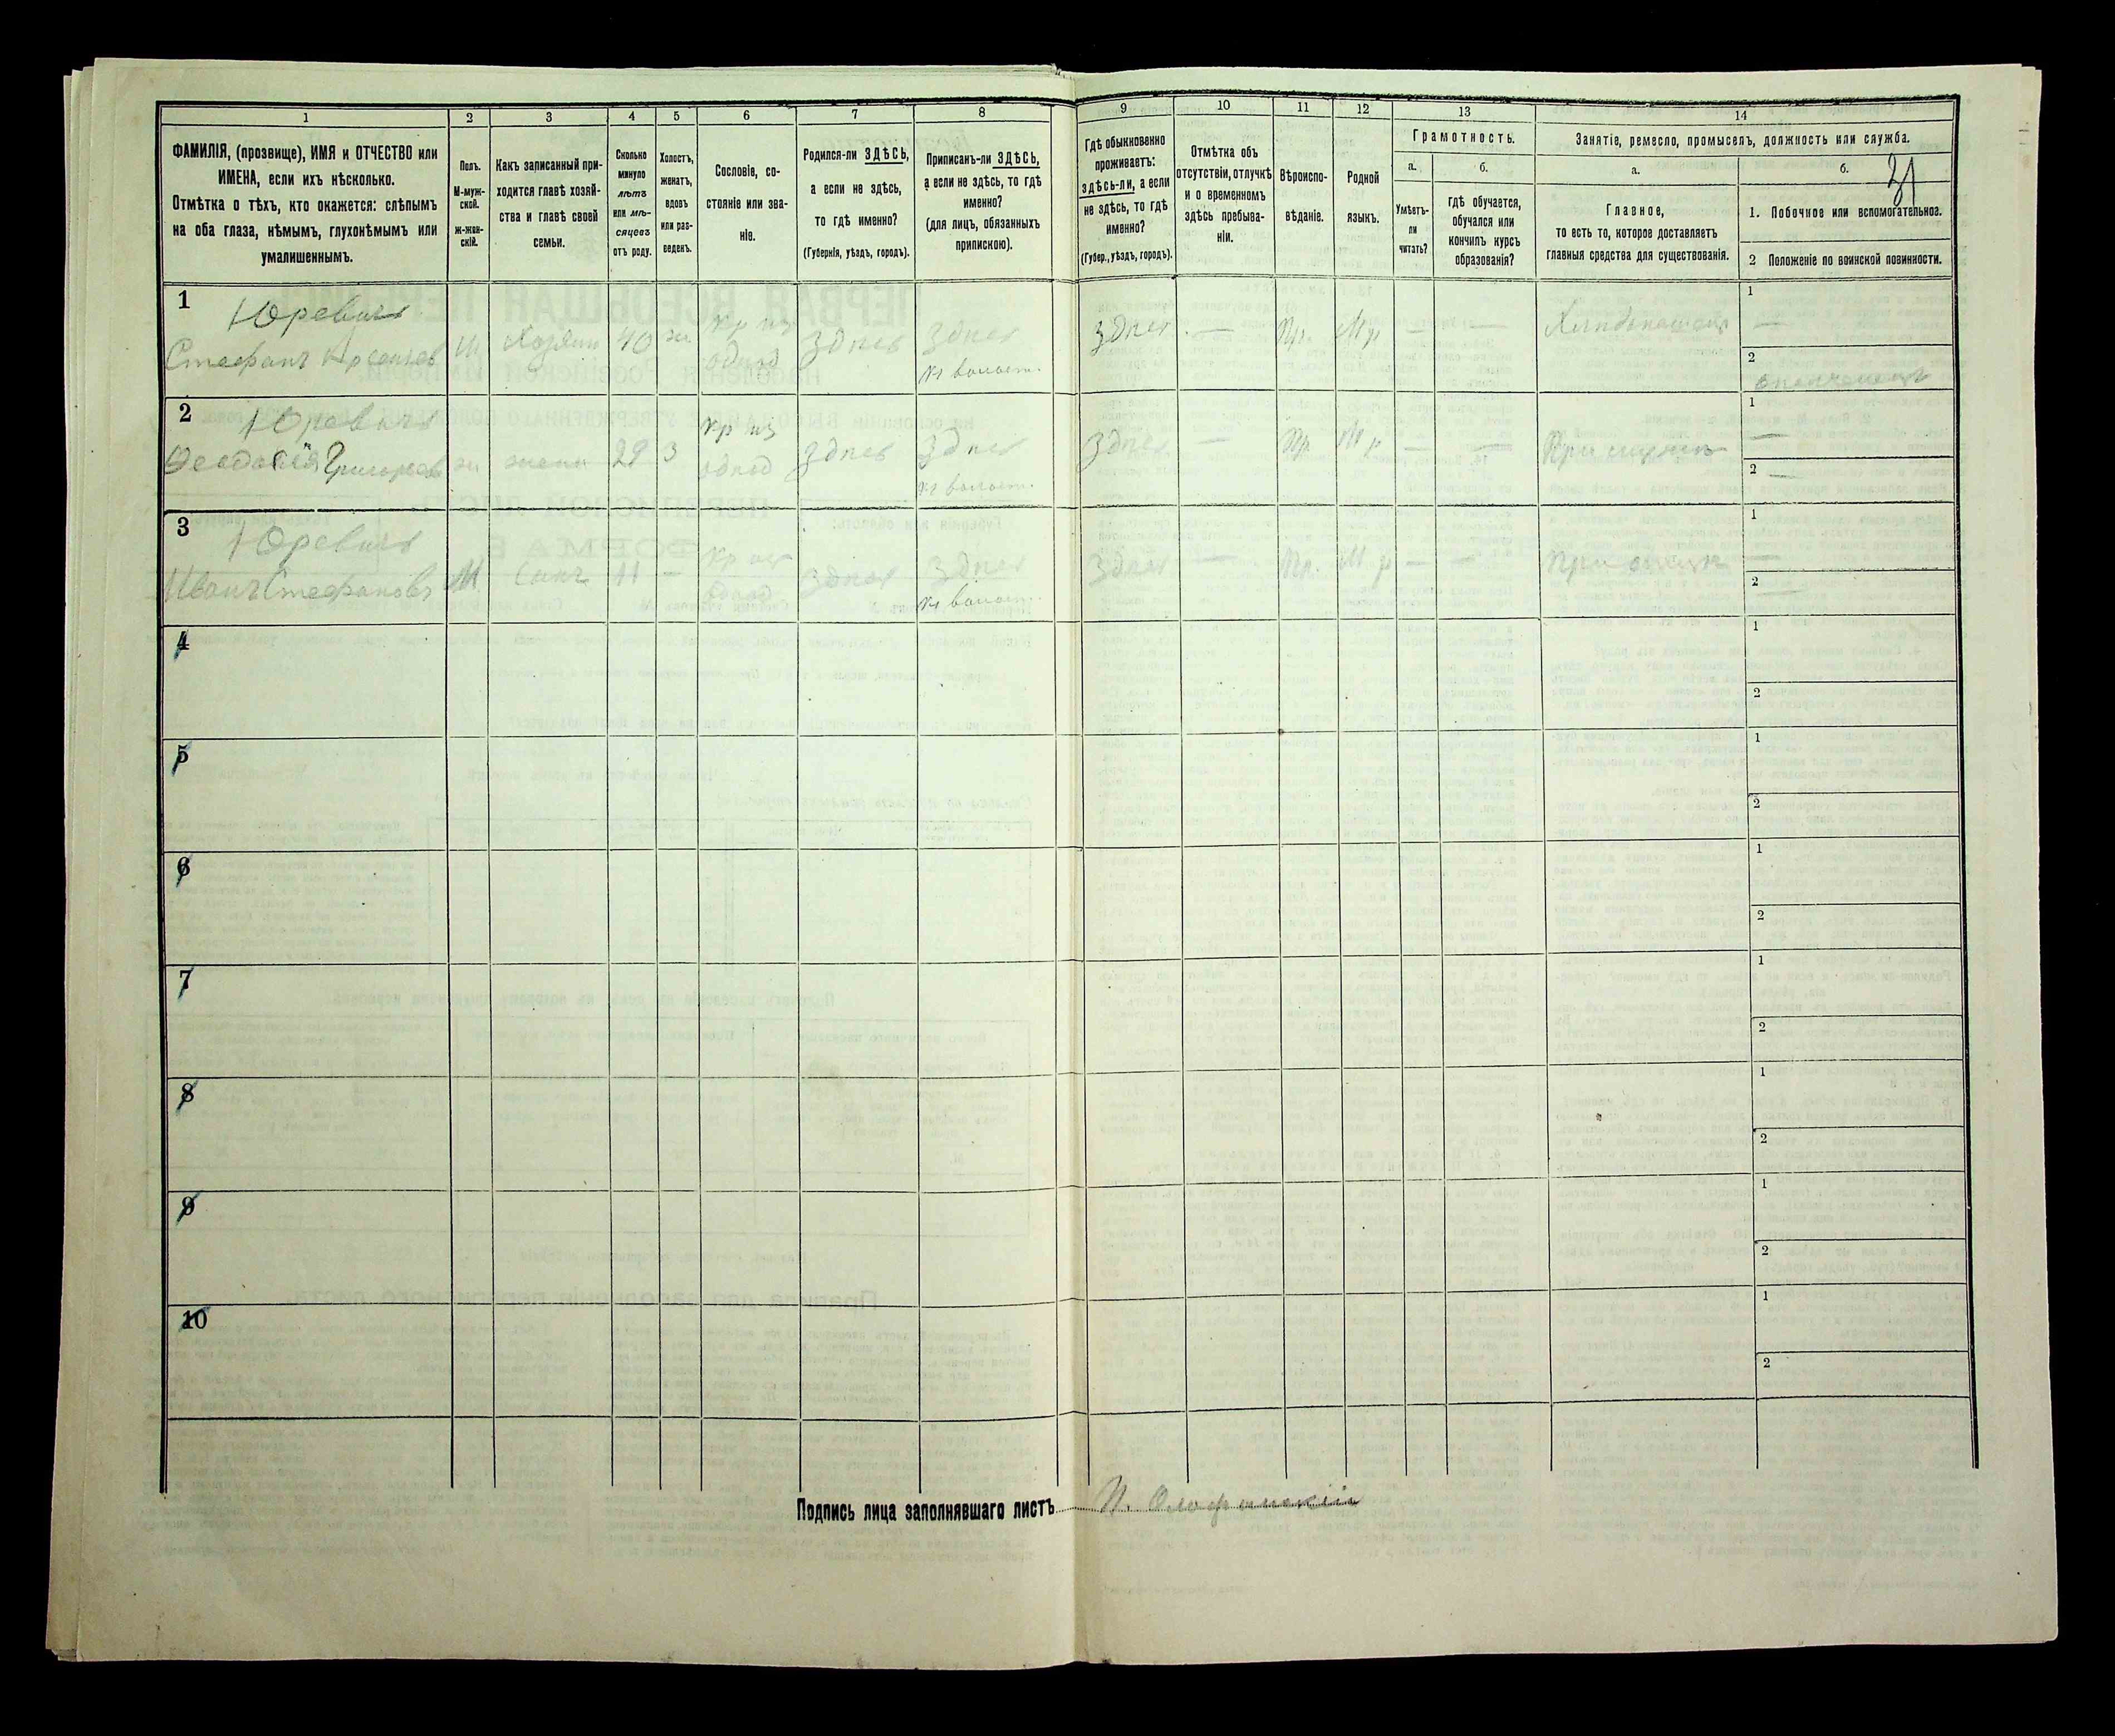 1
2
3
4
5
6
7
8
9
10
11
12
13
14
ФАМИЛІЯ, (прозвище), ИМЯ и ОТЧЕСТВО или
ИМЕНА, если ихъ нѣсколько.
Отмѣтка о тѣхъ, кто окажется: слѣпымъ
на оба глаза, нѣмымъ, глухонѣмымъ или
умалишеннымъ.
Полъ.
М-муж-
ской.
Ж-жен-
скій.
Какъ записанный при-
ходится главѣ хозяй-
ства и главѣ своей
семьи.
Сколько
минуло
лѣтъ
или мѣ-
сяцевъ
отъ роду.
Холостъ,
женатъ,
вдовъ
или раз-
веденъ.
Сословіе, со-
стояніе или зва-
ніе.
Родился-ли ЗДѢСЬ,
а если не здѣсь,
то гдѣ именно?
(Губернія, уѣздъ, городъ).
Приписанъ-ли ЗДѢСЬ,
а если не здѣсь, то гдѣ
именно?
(для лицъ, обязанныхъ
припискою).
Гдѣ обыкновенно
проживаетъ:
здѣсь-ли, а если
не здѣсь, то гдѣ
именно?
(Губер., уѣздъ, городъ).
Отмѣтка объ
отсутствіи, отлучкѣ
и о временномъ
здѣсь пребыва-
ніи.
Вѣроиспо-
вѣданіе.
Родной
языкъ.
Грамотность.
а.
Умѣетъ-
ли
читать?
б.
гдѣ обучается,
обучался или
кончилъ курсъ
образованія?
Занятіе, ремесло, промыселъ, должность или служба.
а.
Главное,
то есть то, которое доставляетъ
главныя средства для существованія.
б.
31
1. Побочное или вспомогательное.
2 Положеніе по воинской повинности.
1
Юревичъ
Стефанъ Арсеньев М Хозяин 40 ж. Кр из
однод Здѣсь Здѣсь
Кр волост.
Здѣсь — Пр. Мр — — Хлѣбопашец
1 —
2 ополченецъ
2
Юревичъ
Феодосія Григорьев ж жена 29 З Кр из
однод Здѣсь Здѣсь
Кр волост.
Здѣсь — Пр Мр — — При мужѣ
1 —
2 —
3
Юревичъ
Иванъ Стефановъ М Сынъ 11 — Кр из
однод Здѣсь Здѣсь
Кр волост.
Здѣсь — Пр. Мр — — При отцѣ
1 —
2 —
4
1
2
5
1
2
6
1
2
7
1
2
8
1
2
9
1
2
10
1
2
Подпись лица заполнявшаго листъ